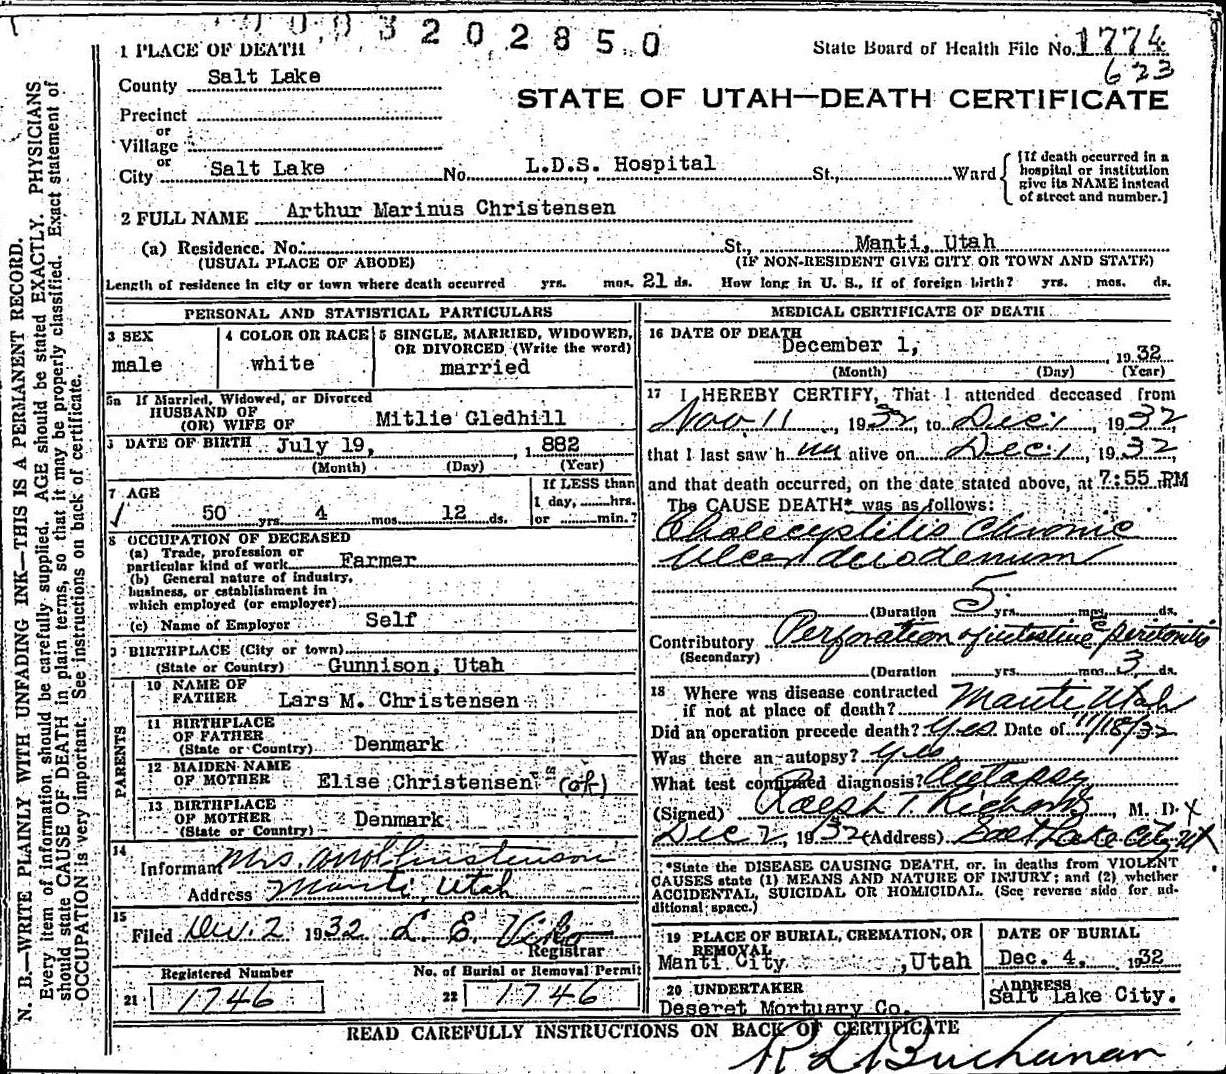 0 0 0 3 2 0 2 8 5 0
State Board of Health File No. 1774
623
1 PLACE OF DEATH
County Salt Lake
STATE OF UTAH—DEATH CERTIFICATE
Precinct
or
Village
or
City Salt Lake No. L.D.S. Hospital St., Ward
[If death occurred in a
hospital or institution
give its NAME instead
of street and number.]
2 FULL NAME Arthur Marinus Christensen
(a) Residence. No. St., Manti, Utah
(USUAL PLACE OF ABODE) (IF NON-RESIDENT GIVE CITY OR TOWN AND STATE)
Length of residence in city or town where death occurred yrs. mos. 21 ds. How long in U. S., if of foreign birth? yrs. mos. ds.
PERSONAL AND STATISTICAL PARTICULARS
3 SEX
male
4 COLOR OR RACE
white
5 SINGLE, MARRIED, WIDOWED,
OR DIVORCED (Write the word)
married
5a If Married, Widowed, or Divorced
HUSBAND OF
(OR) WIFE OF Mitlie Gledhill
DATE OF BIRTH July 19, 1882
(Month) (Day) (Year)
7 AGE
50 yrs. 4 mos. 12 ds.
If LESS than
1 day, hrs.
or min.?
8 OCCUPATION OF DECEASED
(a) Trade, profession or
particular kind of work Farmer
(b) General nature of industry,
business, or establishment in
which employed (or employer)
(c) Name of Employer Self
BIRTHPLACE (City or town)
(State or Country) Gunnison, Utah
PARENTS
10 NAME OF
FATHER Lars M. Christensen
11 BIRTHPLACE
OF FATHER
(State or Country) Denmark
12 MAIDEN NAME
OF MOTHER Elise Christensen is (ok)
13 BIRTHPLACE
OF MOTHER
(State or Country) Denmark
14
Informant Mrs. A M Christensen
Address Manti, Utah
15
Filed Dec. 2 1932 L. E. Viko
Registrar
Registered Number
21 1746
No. of Burial or Removal Permit
22 1746
MEDICAL CERTIFICATE OF DEATH
16 DATE OF DEATH
December 1, 1932
(Month) (Day) (Year)
17 I HEREBY CERTIFY, That I attended deceased from
Nov 11, 1932, to Dec 1, 1932,
that I last saw h im alive on Dec 1, 1932,
and that death occurred, on the date stated above, at 7:55 PM
The CAUSE DEATH* was as follows:
Cholecystitis Chronic
Ulcer duodenum
(Duration 5 yrs. mos. ds.
Contributory Perforation of intestine peritonitis
(Secondary)
(Duration yrs. mos. 3 ds.
18 Where was disease contracted
if not at place of death? Manti Utah
Did an operation precede death? Yes Date of 11/18/32
Was there an autopsy? yes
What test confirmed diagnosis? Autopsy
(Signed) Ralph T Richards, M. D.
Dec 2, 1932 (Address) Salt Lake City, Ut
*State the DISEASE CAUSING DEATH, or, in deaths from VIOLENT
CAUSES state (1) MEANS AND NATURE OF INJURY; and (2) whether
ACCIDENTAL, SUICIDAL OR HOMICIDAL. (See reverse side for ad-
ditional space.)
19 PLACE OF BURIAL, CREMATION, OR
REMOVAL
Manti City, Utah
DATE OF BURIAL
Dec. 4, 1932
20 UNDERTAKER
Deseret Mortuary Co.
ADDRESS
Salt Lake City.
READ CAREFULLY INSTRUCTIONS ON BACK OF CERTIFICATE
R L Buchanan
N. B.—WRITE PLAINLY WITH UNFADING INK—THIS IS A PERMANENT RECORD.
Every item of information should be carefully supplied. AGE should be stated EXACTLY. PHYSICIANS
should state CAUSE OF DEATH in plain terms, so that it may be properly classified. Exact statement of
OCCUPATION is very important. See instructions on back of certificate.